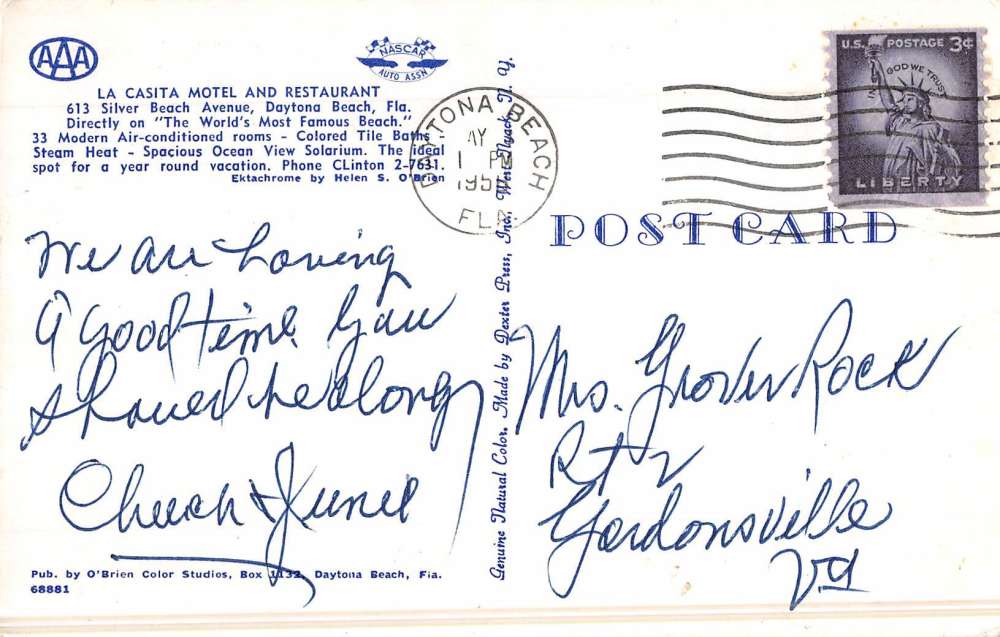 AAA
NASCAR
AUTO ASSN
LA CASITA MOTEL AND RESTAURANT
613 Silver Beach Avenue, Daytona Beach, Fla.
Directly on "The World's Most Famous Beach."
33 Modern Air-conditioned rooms - Colored Tile Baths
Steam Heat - Spacious Ocean View Solarium. The ideal
spot for a year round vacation. Phone CLinton 2-7631.
Ektachrome by Helen S. O'Brien
We are having
a good time. You
should be along
Chuck & June
Pub. by O'Brien Color Studios, Box 1132, Daytona Beach, Fla.
68881
Genuine Natural Color. Made by Dexter Press, Inc., West Nyack, N. Y.
DAYTONA BEACH
AY
1 PM
195
FLA
U.S. POSTAGE 3¢
IN GOD WE TRUST
LIBERTY
POST CARD
Mrs. Grover Rock
Rt 2
Gordonsville
Va